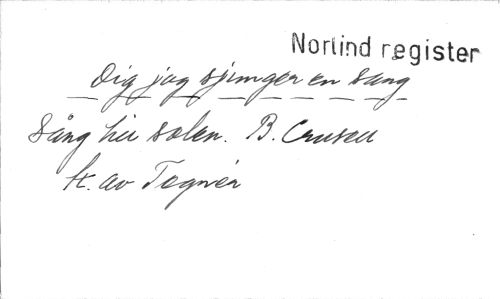 Norlind register
Dig jag sjunger en sång
Sång till solen. B. Crusell
t. av Tegnér